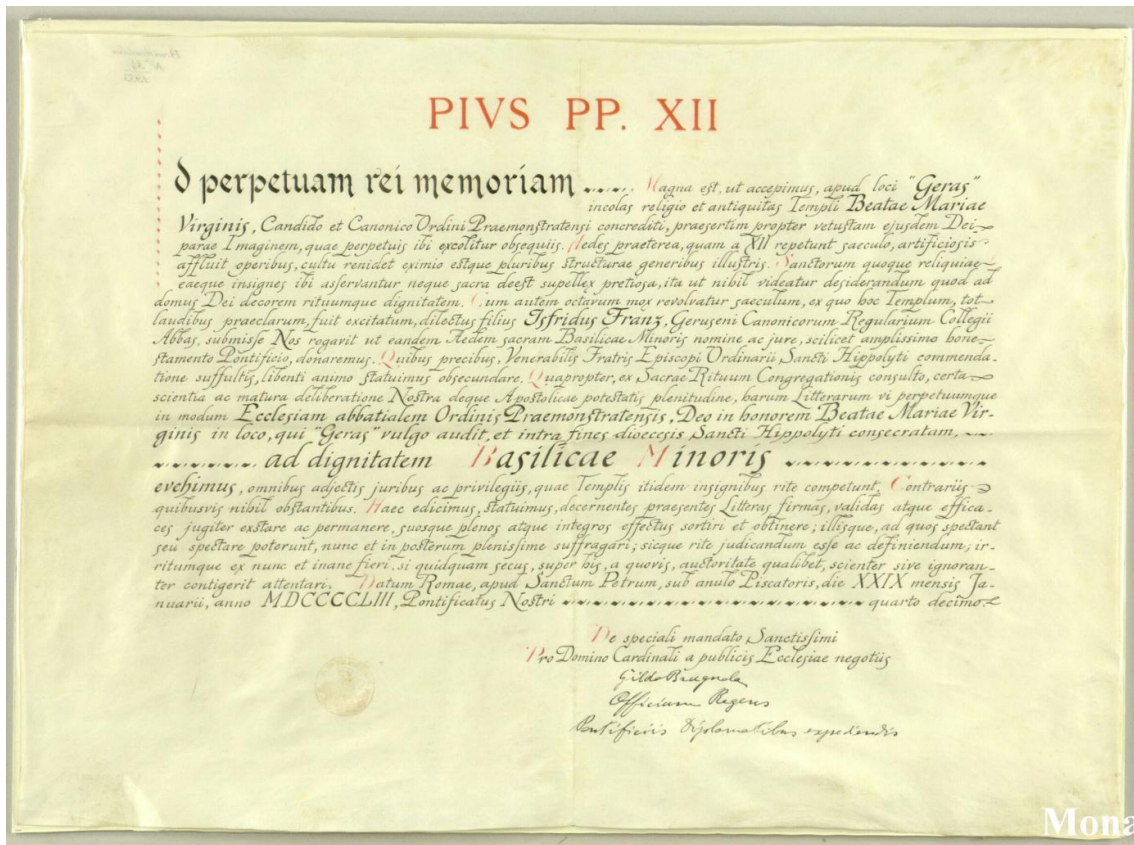 PIVS PP. XII
d perpetuam rei memoriam Magna est, ut accepimus, apud loci "Geras"
incolas religio et antiquitas Templi Beatae Mariae
Virginis, Candido et Canonico Ordini Praemonstratensi concrediti, praesertim propter vetustam ejusdem Dei-
parae Imaginem, quae perpetuis ibi excolitur obsequiis. Aedes praeterea, quam a XII repetunt saeculo, artificiosis
affluit operibus, cultu renidet eximio estque pluribus structurae generibus illustris. Sanctorum quoque reliquiae
eaeque insignes ibi asservantur neque sacra deest supellex pretiosa, ita ut nihil videatur desiderandum quod ad
domus Dei decorem rituumque dignitatem. Cum autem octavum mox revolvatur saeculum, ex quo hoc Templum, tot
laudibus praeclarum, fuit excitatum, dilectus filius Isfridus Franz, Geruseni Canonicorum Regularium Collegii
Abbas, submisse Nos rogarit ut eandem Aedem sacram Basilicae Minoris nomine ac jure, scilicet amplissimo hone-
stamento Pontificio, donaremus. Quibus precibus, Venerabilis Fratris Episcopi Ordinarii Sancti Hippolyti commenda-
tione suffultis, libenti animo statuimus obsecundare. Quapropter, ex Sacrae Rituum Congregationis consulto, certa
scientia ac matura deliberatione Nostra deque Apostolicae potestatis plenitudine, harum Litterarum vi perpetuumque
in modum Ecclesiam abbatialem Ordinis Praemonstratensis, Deo in honorem Beatae Mariae Vir-
ginis in loco, qui "Geras" vulgo audit, et intra fines dioecesis Sancti Hippolyti consecratam,
ad dignitatem Basilicae Minoris
evehimus, omnibus adjectis juribus ac privilegiis, quae Templis itidem insignibus rite competunt. Contrariis
quibusvis nihil obstantibus. Haec edicimus, statuimus, decernentes praesentes Litteras firmas, validas atque effica-
ces jugiter exstare ac permanere, suosque plenos atque integros effectus sortiri et obtinere; illisque, ad quos spectant
seu spectare poterunt, nunc et in posterum plenissime suffragari; sicque rite judicandum esse ac definiendum; ir-
ritumque ex nunc et inane fieri, si quidquam secus, super his, a quovis, auctoritate qualibet, scienter sive ignoran-
ter contigerit attentari. Datum Romae, apud Sanctum Petrum, sub anulo Piscatoris, die XXIX mensis Ja-
nuarii, anno MDCCCCLIII, Pontificatus Nostri quarto decimo.
De speciali mandato Sanctissimi
Pro Domino Cardinali a publicis Ecclesiae negotiis
Gildo Brugnola
Officium Regens
Pontificiis Diplomatibus expediendis
Mona